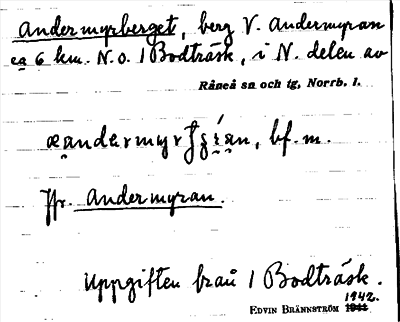 Andermyrberget, berg V. Andermyran
ca 6 km. N.O. 1 Bodträsk, i N. delen av
Råneå sn och tg, Norrb. l.
bf. m.
Jfr. Andermyran.
Uppgiften från 1 Bodträsk.
1942.
EDVIN BRÄNNSTRÖM 1941